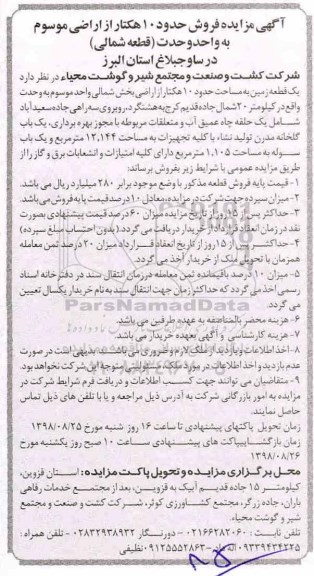 آگهی مزایده فروش حدود ۱۰ هکتار از اراضی موسوم
به واحد وحدت (قطعه شمالی)
در ساوجبلاغ استان البرز
شرکت کشت و صنعت و مجتمع شیر و گوشت محیاء در نظر دارد
یک قطعه زمین به مساحت حدود ۱۰ هکتار از اراضی بخش شمالی واحد موسوم به وحدت
واقع در کیلومتر ۲۰ شمال جاده قدیم کرج به هشتگرد، روبروی سه راهی جاده سعیدآباد
شامل یک حلقه چاه عمیق آب و متعلقات مربوطه با مجوز بهره برداری، یک باب
گلخانه مدرن تولید نشاء با کلیه تجهیزات به مساحت ۱۲,۱۴۴ مترمربع و یک باب
سوله به مساحت ۱,۱۰۵ مترمربع دارای کلیه امتیازات و انشعابات برق و گاز را از
طریق مزایده عمومی با شرایط زیر بفروش برساند:
۱- قیمت پایه فروش قطعه مذکور با وضع موجود برابر ۲۸۰ میلیارد ریال می باشد.
۲- میزان سپرده جهت شرکت در مزایده، معادل ۱۰ درصد قیمت پایه فروش می باشد.
۳- حداکثر پس از ۱۵ روز از تاریخ مزایده میزان ۶۰ درصد قیمت پیشنهادی بصورت
نقد در زمان انعقاد قرارداد از خریدار دریافت می گردد.(بدون احتساب مبلغ سپرده)
۴- حداکثر پس از ۱۵ روز از تاریخ انعقاد قرارداد میزان ۲۰ درصد ثمن معامله
همزمان با تحویل ملک از خریدار اخذ می گردد.
۵- میزان ۱۰ درصد باقیمانده ثمن معامله در زمان انتقال سند در دفترخانه اسناد
رسمی اخذ می گردد که حداکثر زمان جهت انتقال سند به نام خریدار یکسال تعیین
می گردد.
۶- هزینه محضر بالمناصفه به عهده طرفین می باشد.
۷- هزینه کارشناسی و آگهی بعهده خریدار می باشد.
۸- اخذ اطلاعات و بازدید از ملک لازم و ضروری می باشد. بدیهی است در صورت
عدم بازدید و اخذ اطلاعات در مورد ملک، مسئولیتی متوجه این شرکت نخواهد بود.
۹- متقاضیان می توانند جهت کسب اطلاعات و دریافت فرم شرایط شرکت در
مزایده به امور بازرگانی شرکت به آدرس ذیل مراجعه و یا با تلفن های ذیل تماس
حاصل نمایند.
زمان تحویل پاکتهای پیشنهادی تا ساعت ۱۶ روز شنبه مورخ ۱۳۹۸/۰۸/۲۵
زمان بازگشایی پاکت های پیشنهادی ساعت ۱۰ صبح روز یکشنبه مورخ
۱۳۹۸/۰۸/۲۶
محل برگزاری مزایده و تحویل پاکت مزایده: استان قزوین،
کیلومتر ۱۵ جاده قدیم آبیک به قزوین، بعد از مجتمع خدمات رفاهی
باران، جاده زرگر، مجتمع کشاورزی کوثر، شرکت کشت و صنعت و مجتمع
شیر و گوشت محیاء.
تلفن ثابت: ۰۲۱۶۶۲۸۲۰۶۰ - دورنگار ۰۲۸۳۲۹۳۸۹۳۲ - تلفن همراه:
۰۹۳۳۹۴۳۴۲۲۵ - ۰۹۱۲۵۵۵۲۸۶۳ نظیفی
ParsNamadData